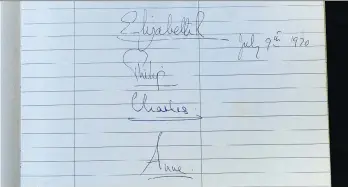 Elizabeth R
July 9th 1970
Philip
Charles
Anne